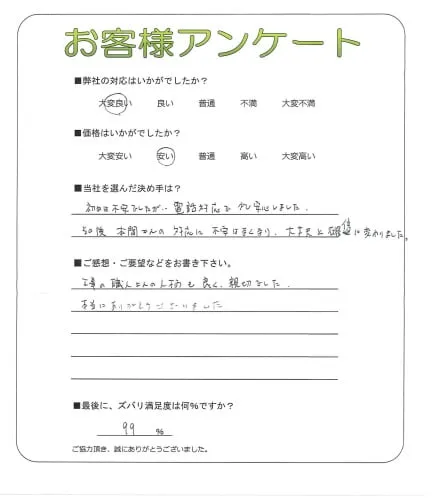 お客様アンケート
■弊社の対応はいかがでしたか？
大変良い 良い 普通 不満 大変不満
■価格はいかがでしたか？
大変安い 安い 普通 高い 大変高い
■当社を選んだ決め手は？
初めは不安でしたが、電話対応で少し安心しました。
その後 本間さんの対応に不安はなくなり、大丈夫と確信に変わりました。
■ご感想・ご要望などをお書き下さい。
工事の職人さんの人柄も良く、親切でした。
本当にありがとうございました
■最後に、ズバリ満足度は何％ですか？
99 ％
ご協力頂き、誠にありがとうございました。